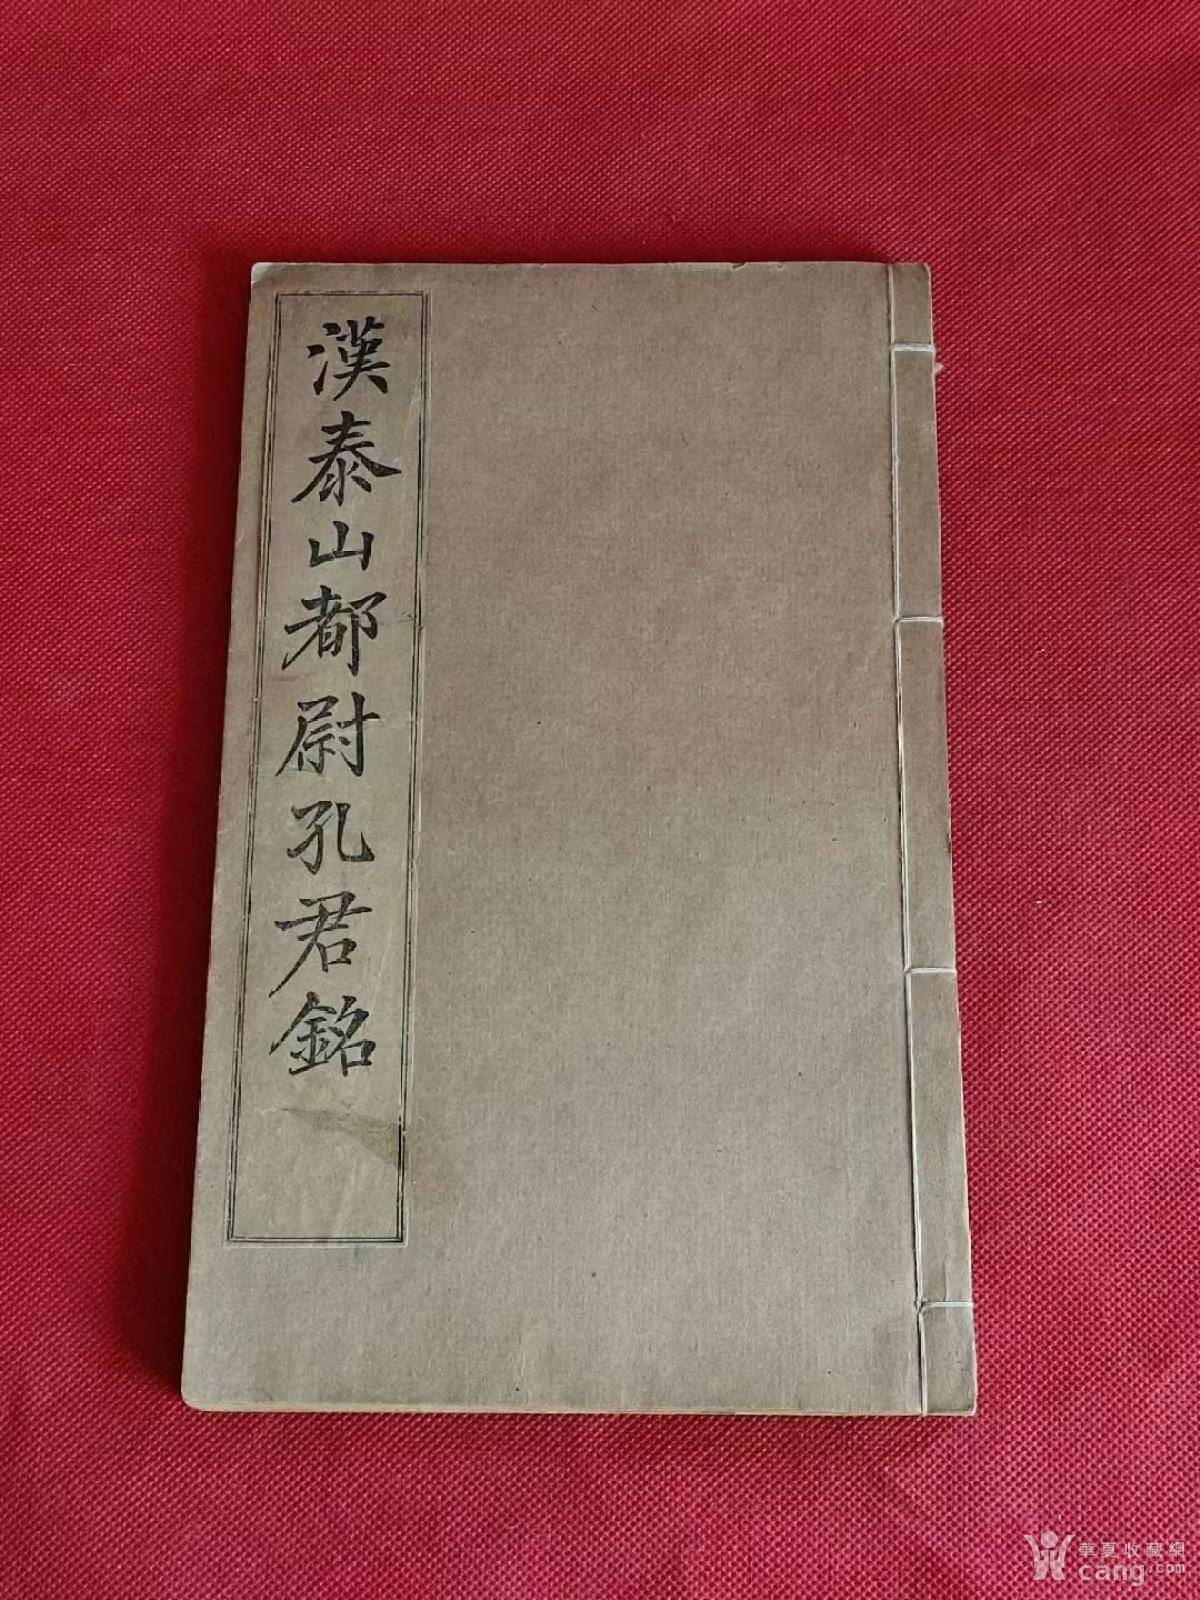 漢泰山都尉孔君銘
華夏收藏網
cang.com